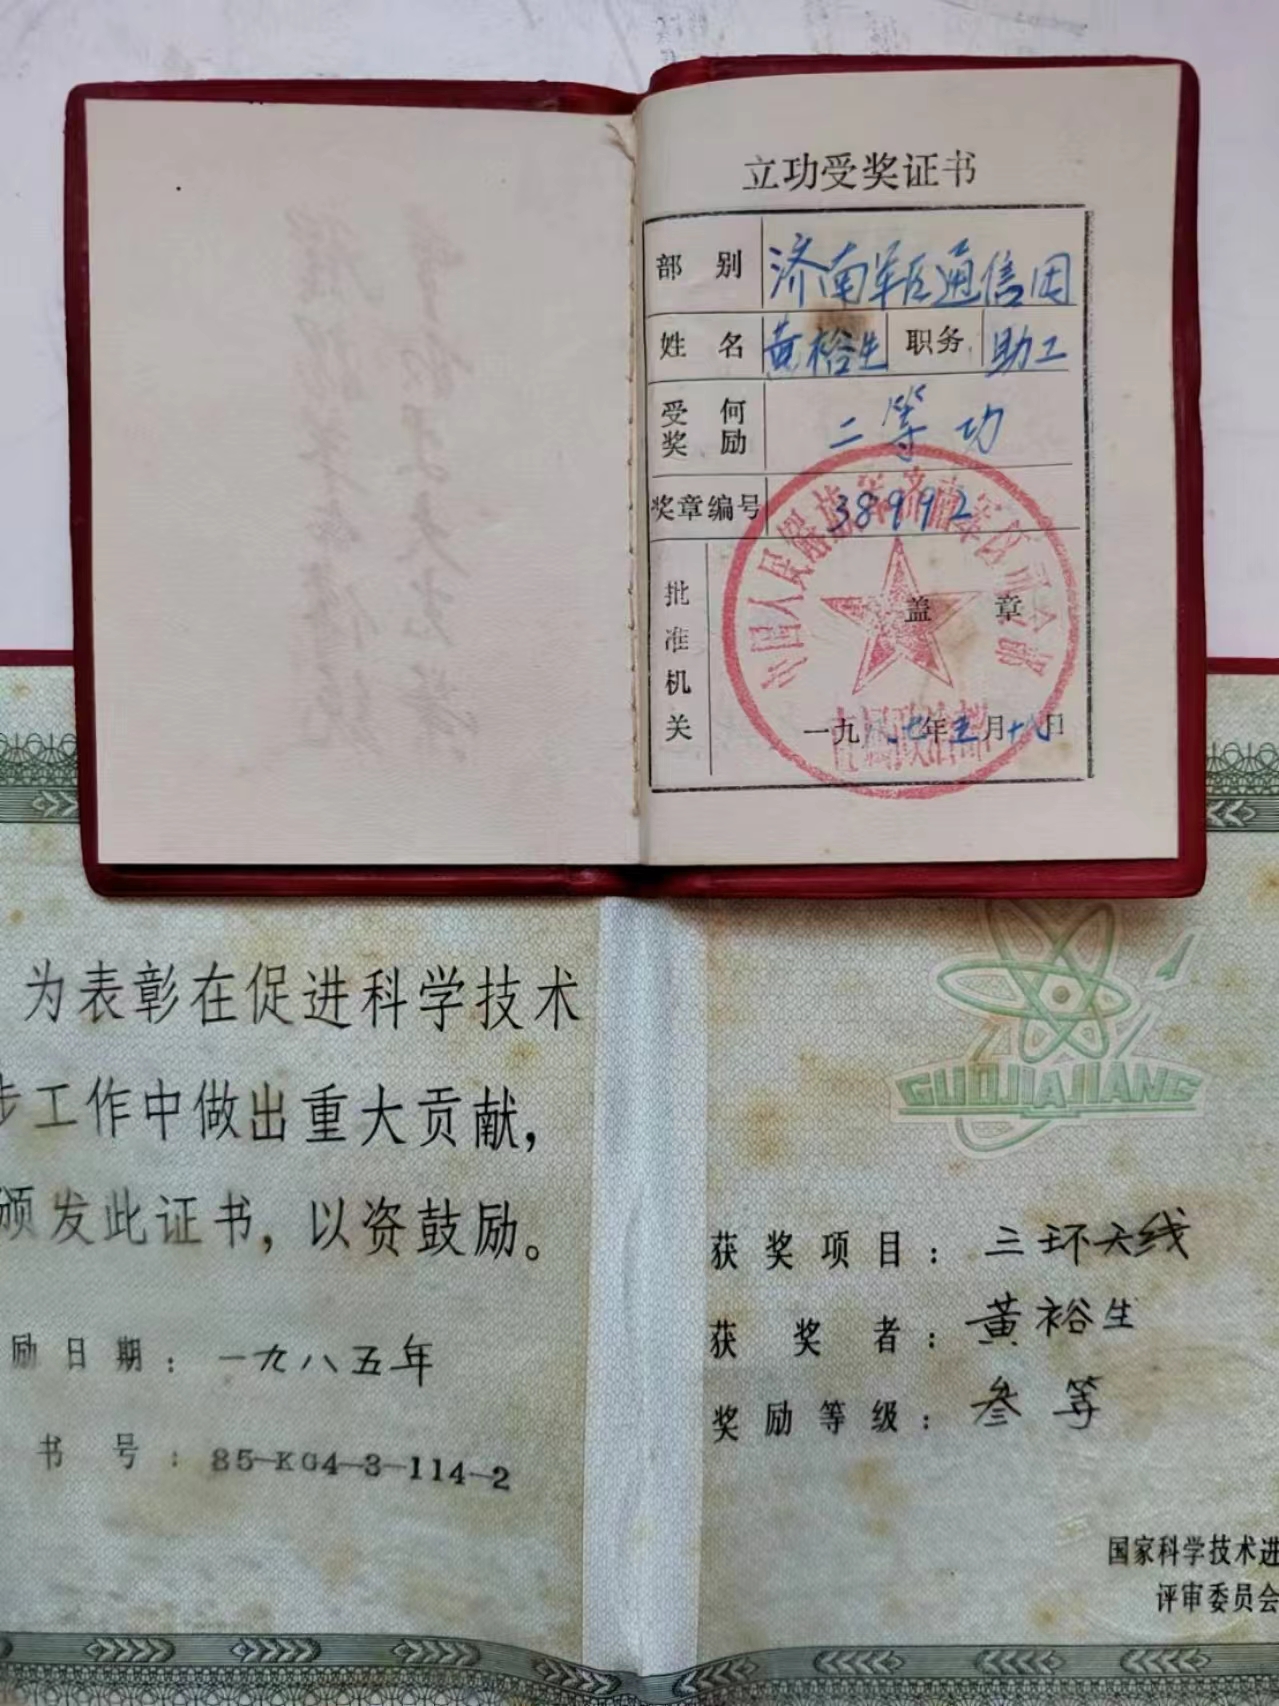 立功受奖证书
部别 济南军区通信团
姓名 黄裕生 职务 助工
受何奖励 二等功
奖章编号 38992
批准机关 盖章
中国人民解放军济南军区司令部
直属政治部
一九 七年 月十八日
为表彰在促进科学技术
步工作中做出重大贡献，
颁发此证书，以资鼓励。
励日期：一九八五年
书号：85-KG4-3-114-2
GUOJIAJIANG
获奖项目：三环天线
获奖者：黄裕生
奖励等级：叁等
国家科学技术进
评审委员会